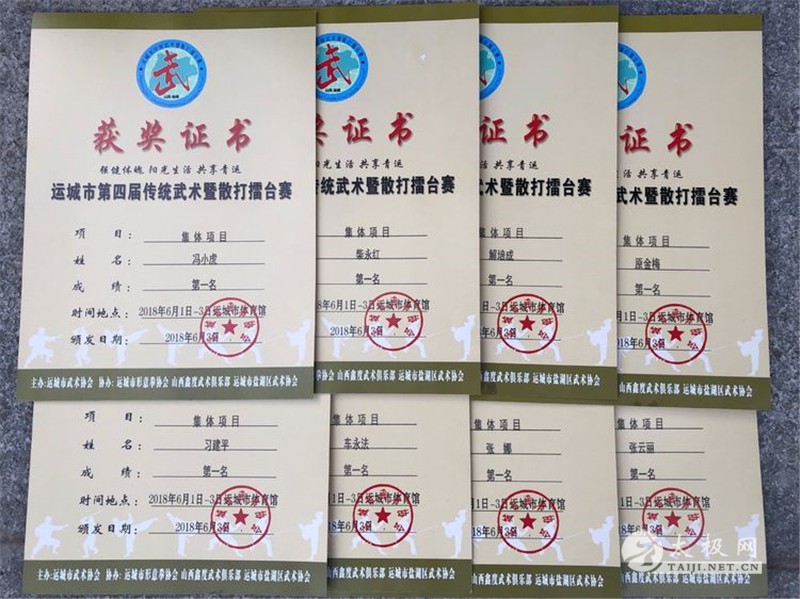 武
获奖证书
强健体魄 阳光生活 共享青运
运城市第四届传统武术暨散打擂台赛
项 目: 集体项目
姓 名: 冯小虎
成 绩: 第一名
时间地点: 2018年6月1日-3日运城市体育馆
颁发日期: 2018年6月3日
主办:运城市武术协会 协办:运城市形意拳协会 山西鑫度武术俱乐部 运城市盐湖区武术协会
奖证书
阳光生活 共享青运
传统武术暨散打擂台赛
集体项目
柴永红
第一名
018年6月1日-3日运城市体育馆
2018年6月3日
拳协会 山西鑫度武术俱乐部 运城市盐湖区武术协会
武
证书
生活 共享青运
武术暨散打擂台赛
集体项目
解培成
第一名
年6月1日-3日运城市体育馆
2018年6月3日
山西鑫度武术俱乐部 运城市盐湖区武术协会
武
证书
共享青运
武术暨散打擂台赛
集体项目
原金梅
第一名
6月1日-3日运城市体育馆
018年6月3日
山西鑫度武术俱乐部 运城市盐湖区武术协会
项 目: 集体项目
姓 名: 习建平
成 绩: 第一名
时间地点: 2018年6月1日-3日运城市体育馆
颁发日期: 2018年6月3日
主办:运城市武术协会 协办:运城市形意拳协会 山西鑫度武术俱乐部 运城市盐湖区武术协会
集体项目
车永法
第一名
年6月1日-3日运城市体育馆
2018年6月3日
拳协会 山西鑫度武术俱乐部 运城市盐湖区武术协会
集体项目
张 娜
第一名
年6月1日-3日运城市体育馆
018年6月3日
山西鑫度武术俱乐部 运城市盐湖区武术协会
集体项目
张云丽
第一名
6月1日-3日运城市体育馆
018年6月3日
山西鑫度武术俱乐部
太极网
TAIJI.NET.CN